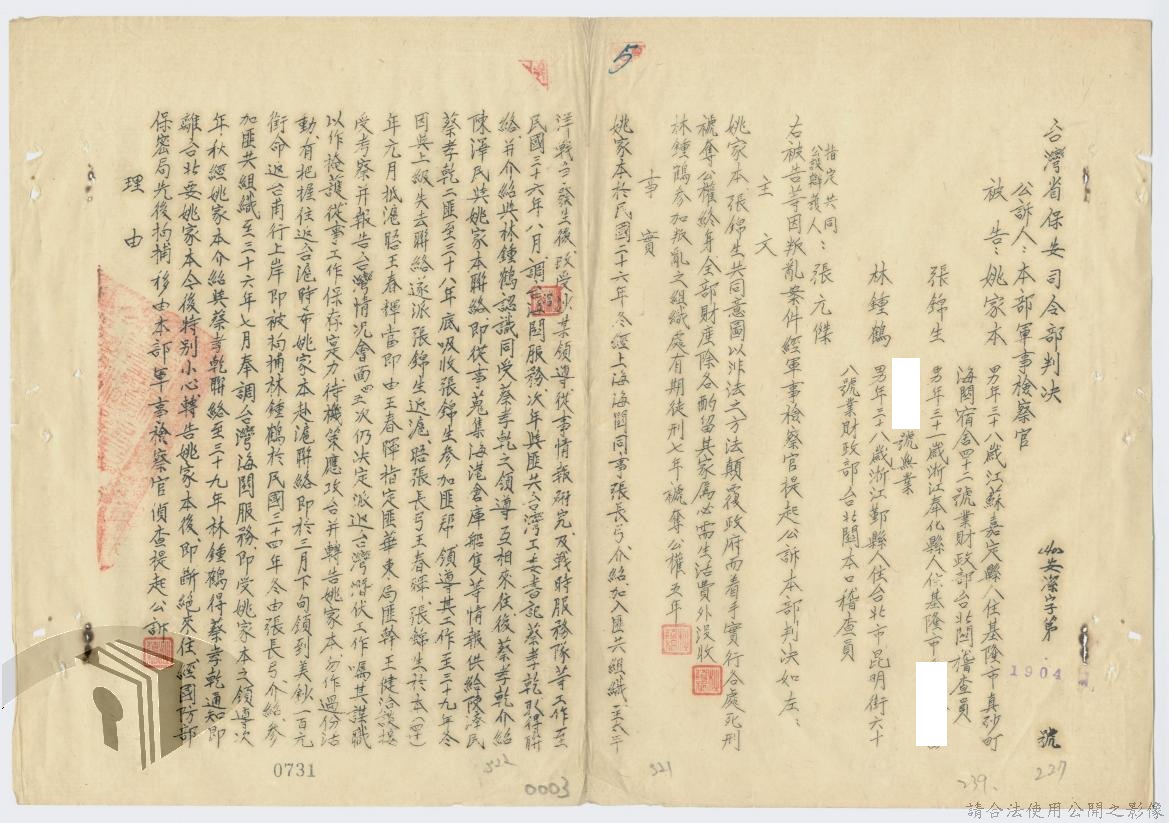 台灣省保安司令部判決
(40)安潔字第 1904 號
公訴人：本部軍事檢察官
被告：姚家本 男年三十八歲江蘇嘉定縣人住基隆市真砂町
海關宿舍四十二號業財政部台北關稽查員
張錦生 男年三十一歲浙江奉化縣人住基隆市
號無業
林鍾鶴 男年三十八歲浙江鄞縣人住台北市昆明街六十
八號業財政部台北關本口稽查員
指定共同
公設辯護人：張元傑
右被告等因叛亂案件經軍事檢察官提起公訴本部判決如左：
主文
姚家本張錦生共同意圖以非法之方法顛覆政府而着手實行各處死刑
褫奪公權終身全部財產除各酌留其家屬必需生活費外沒收
林鍾鶴參加叛亂之組織處有期徒刑七年褫奪公權五年
事實
姚家本於民國二十六年冬經上海海關同事張長弓介紹加入匪共組織至太平
洋戰爭發生後改受 某領導從事情報研究及戰時服務隊等工作至
民國三十六年八月調 關服務次年與匪共台灣工委書記蔡孝乾取得聯
絡并介紹與林鍾鶴認識同受蔡孝乾之領導互相來往後蔡孝乾介紹
陳澤民與姚家本聯絡即從事蒐集海港倉庫船隻等情報供給陳澤民
蔡孝乾二匪至三十八年底吸收張錦生參加匪幫領導其工作至三十九年冬
因與上級失去聯絡遂派張錦生返滬晤張長弓王春暉張錦生於本(四十)
年元月抵滬晤王春暉當即由王春暉指定匪華東局匪幹王健洽談
受考察并報告台灣情況會面四五次仍決定派返台灣潛伏工作囑其謀職
以作掩護從事工作保存實力待機策應攻台并轉告姚家本勿作過份活
動有把握往返台滬時希姚家本赴滬聯絡即於三月下旬領到美鈔一百元
銜命返台甫行上岸即被拘捕林鍾鶴於民國二十四年冬由張長弓介紹參
加匪共組織至三十六年七月奉調台灣海關服務即受姚家本之領導次
年秋經姚家本介紹與蔡孝乾聯絡至三十九年林鍾鶴得蔡孝乾通知即
離台北要姚家本今後特別小心轉告姚家本後即斷絕來往經國防部
保密局先後拘捕移由本部軍事檢察官偵查提起公訴
理由
5
227
239
321
322
0003
0731
請合法使用公開之影像